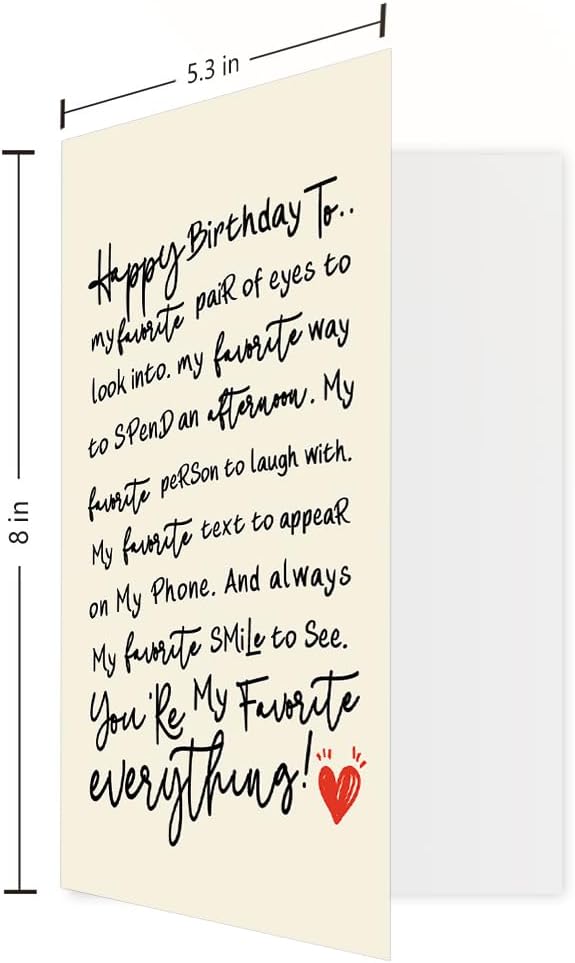 5.3 in
8 in
Happy Birthday To..
my favorite paiR of eyes to
look into. my favorite way
to SPenD an afternoon. My
favorite peRSon to laugh with.
My favorite text to appeaR
on My Phone. And always
My favorite SMiLe to See.
You'Re My Favorite
everything!